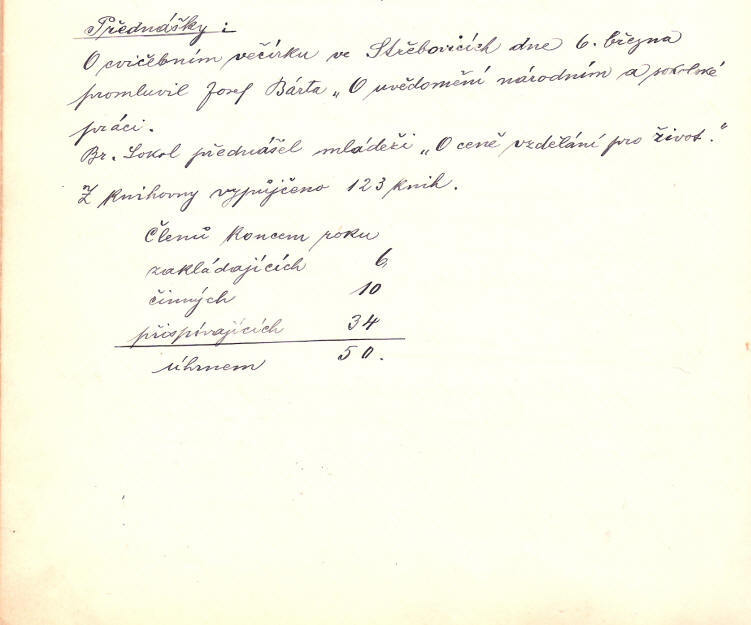 Přednášky:
O cvičebním večírku ve Střebovicích dne 6. března
promluvil Josef Bárta „O uvědomění národním a sokolské
práci.
Br. Sokol přednášel mládeži „O ceně vzdělání pro život."
Z knihovny vypůjčeno 123 knih.
Členů koncem roku
zakládajících 6
činných 10
přispívajících 34
úhrnem 50.